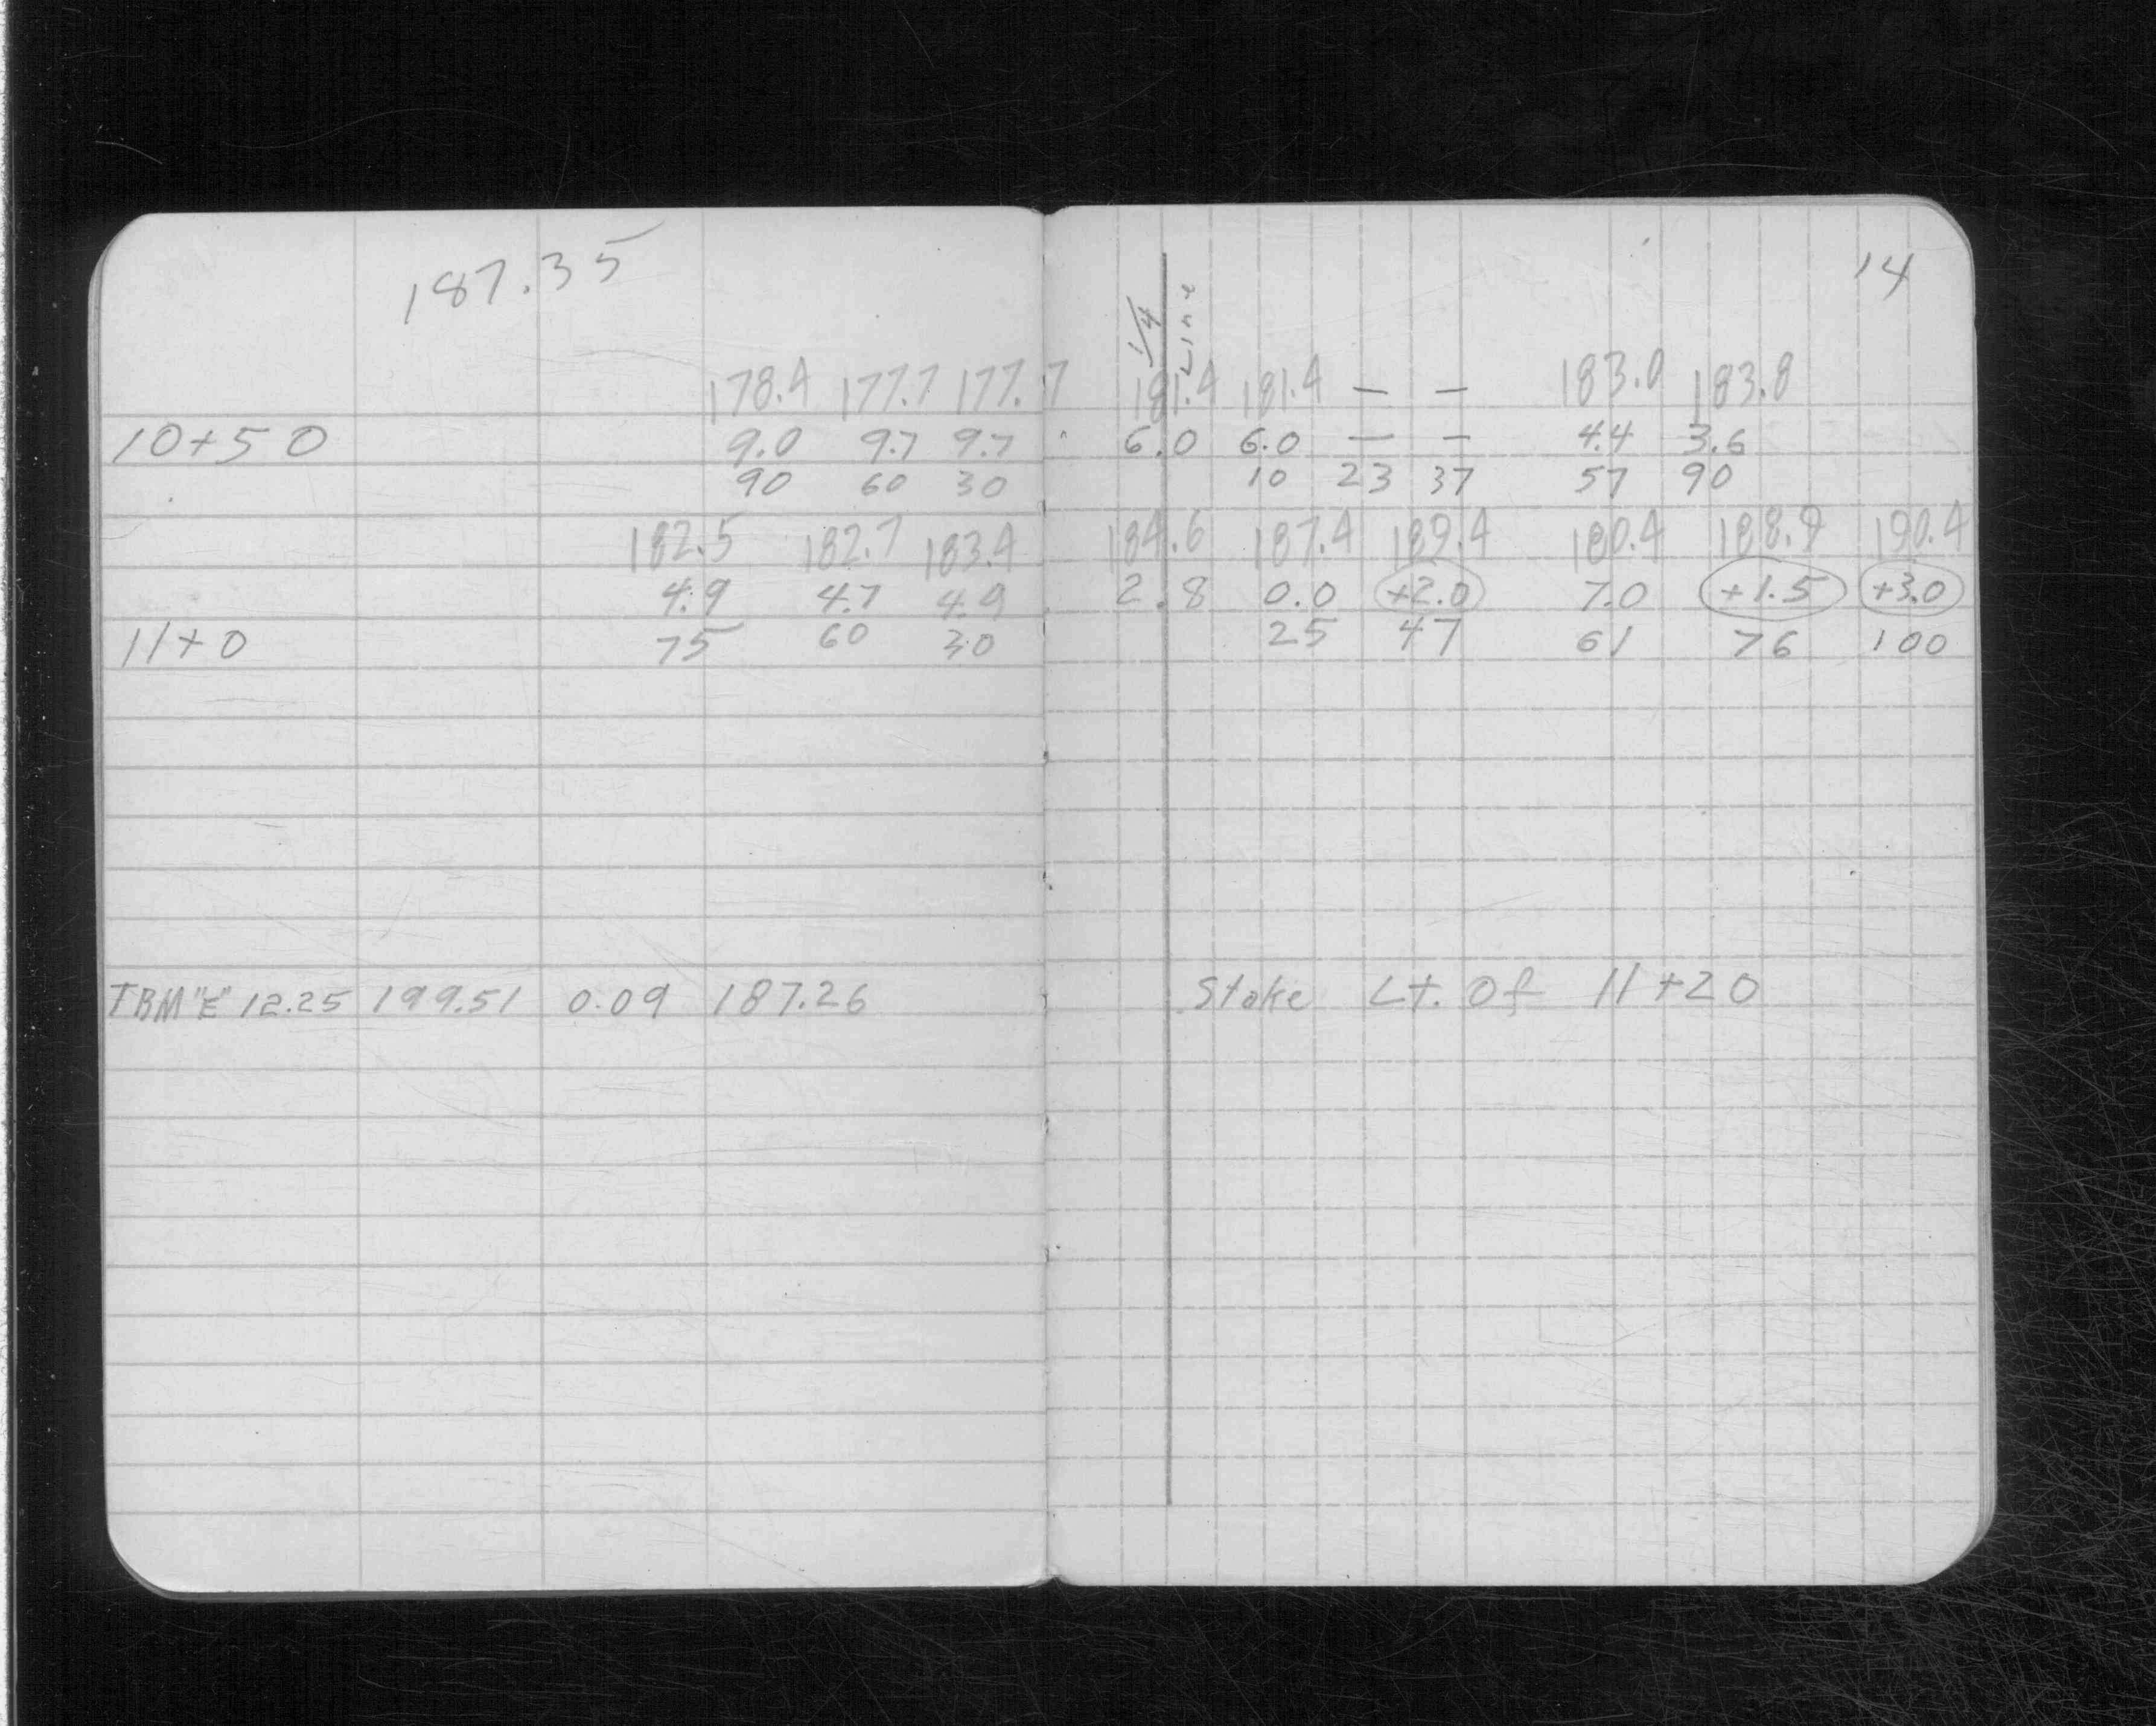 187.35
14
1/4 Line
178.4 177.7 177.7 181.4 181.4 — — 183.0 183.8
10+50 9.0 9.7 9.7 6.0 6.0 — — 4.4 3.6
90 60 30 10 23 37 57 90
182.5 182.7 183.4 184.6 187.4 189.4 180.4 188.9 190.4
4.9 4.7 4.9 2.8 0.0 +2.0 7.0 +1.5 +3.0
11+0 75 60 30 25 47 61 76 100
TBM "E" 12.25 199.51 0.09 187.26 Stake Lt. Of 11+20